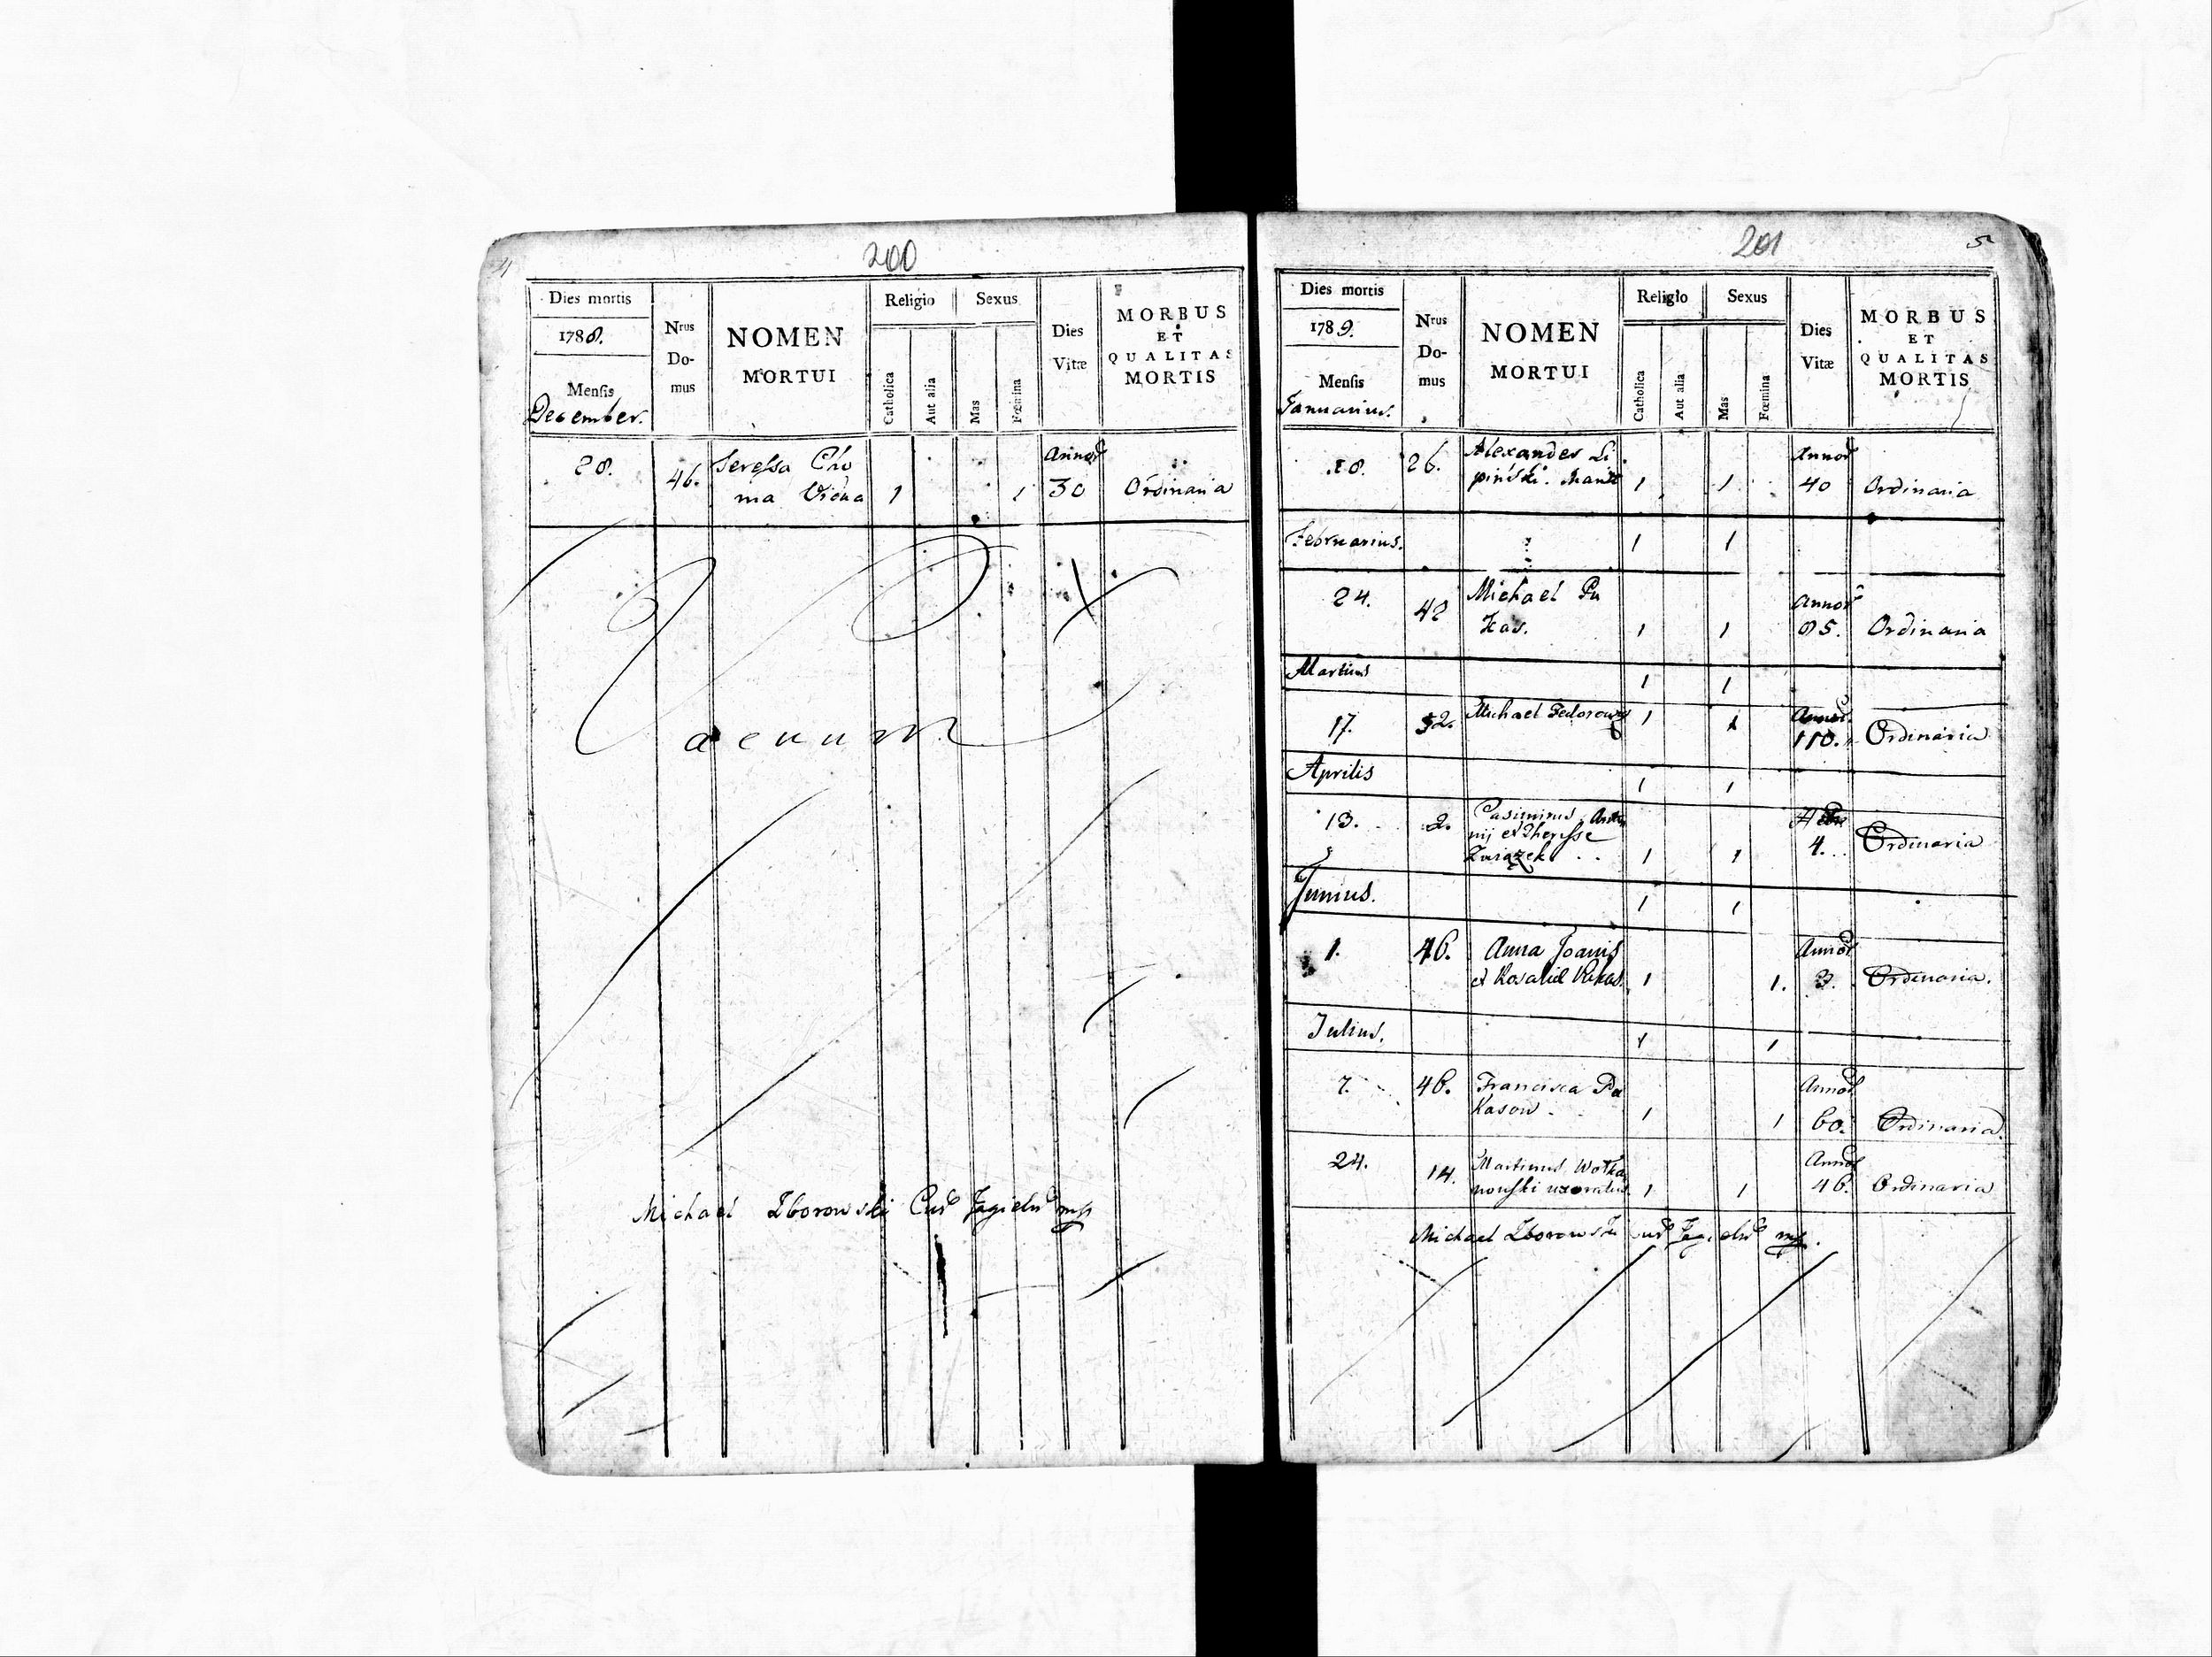 4
200
Dies mortis
1788.
Mensis
December.
Nrus
Do-
mus
NOMEN
MORTUI
Religio
Catholica
Aut alia
Sexus
Mas
Fœmina
Dies
Vitæ
MORBUS
ET
QUALITAS
MORTIS
28. 46. Teressa Cho Annor
ma Vidua 1 1 30 Ordinaria
Vacuum
Michael Zborowski Cur Jagieln mp
201
5
Dies mortis
1789.
Mensis
Januarius.
Nrus
Do-
mus
NOMEN
MORTUI
Religio
Catholica
Aut alia
Sexus
Mas
Fœmina
Dies
Vitæ
MORBUS
ET
QUALITAS
MORTIS
18. 26. Alexander Li Annor
piński. 1 1 40 Ordinaria
Februarius. 1 1
24. 42 Michael Pu Annor
Kas. 1 1 85. Ordinaria
Martius 1 1
17. 52. Michael Fedorowicz 1 1 Annor
110. Ordinaria
Aprilis 1 1
13. 2. Casimirus Anto
nij et Theresse
Związek 1 1 4. Ordinaria
Junius. 1 1
1. 46. Anna Joanis Annor
et Rosaliæ Pukas 1 1. 3. Ordinaria.
Julius. 1 1
7. 46. Francisca Pu Annor
Kasow 1 1 60. Ordinaria
24. 14. Martinus Wołka Annor
nowski uxoratus 1 1 46. Ordinaria
Michael Zborowski Cur Jagieln mp.